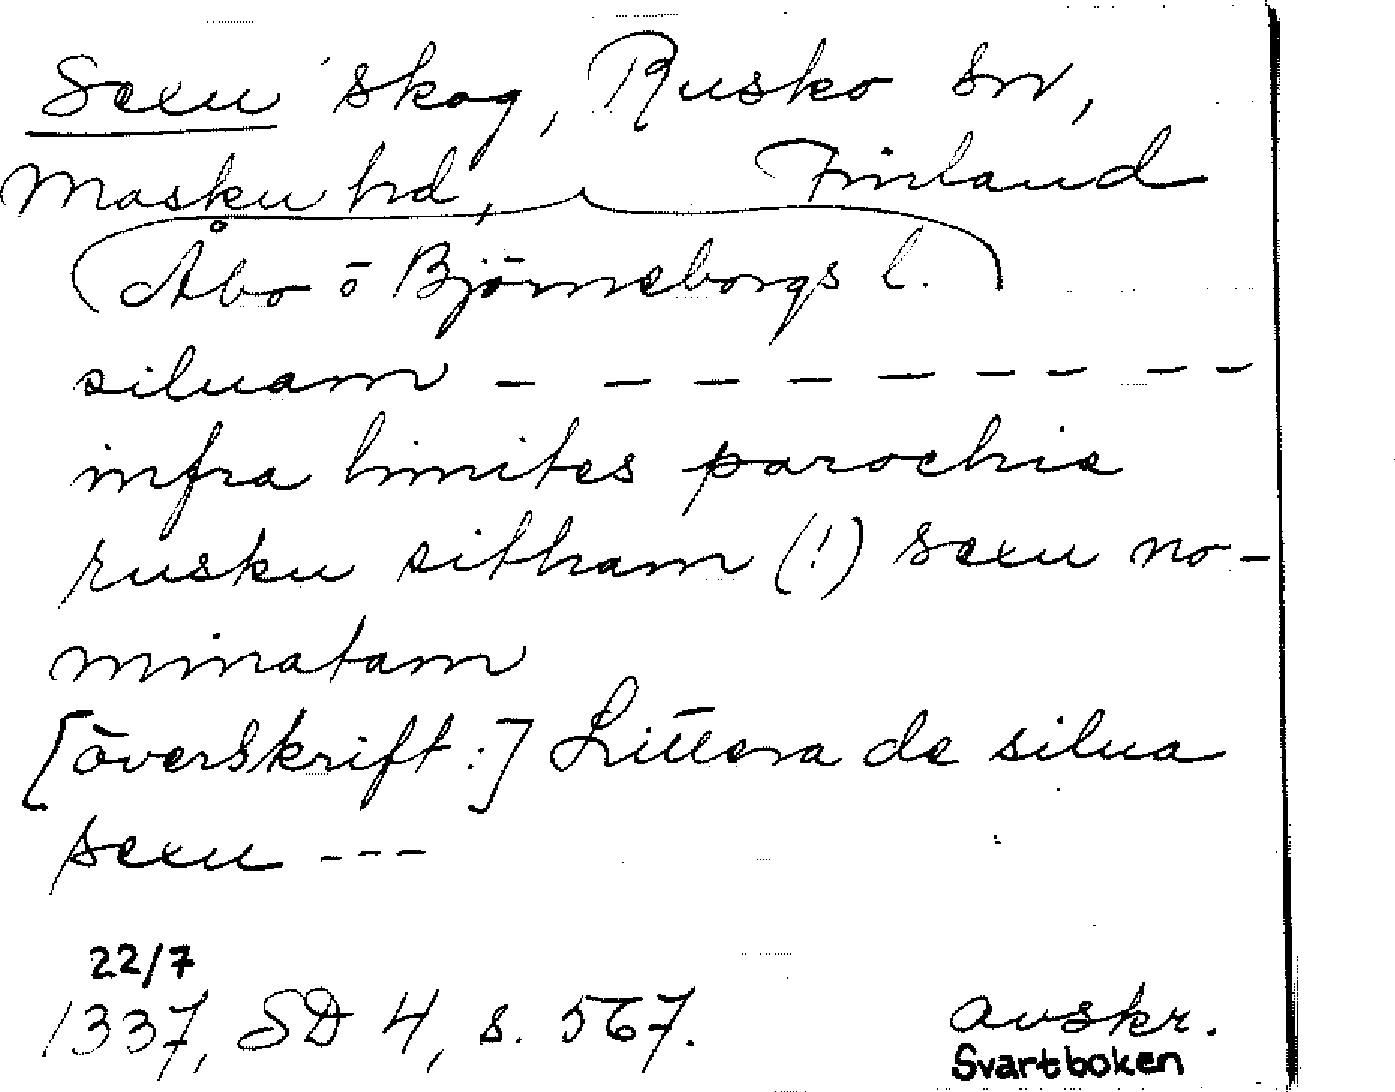 Sexu skog, Rusko sn,
Masku hd, Finland
Åbo o Björneborgs l.
siluam - - - - - - - - -
infra limites parochie
rusku sitham (!) sexu no-
minatam
[överskrift:] Littera de silua
sexu ---
22/7
1337, SD 4, s. 567.
avskr.
Svartboken